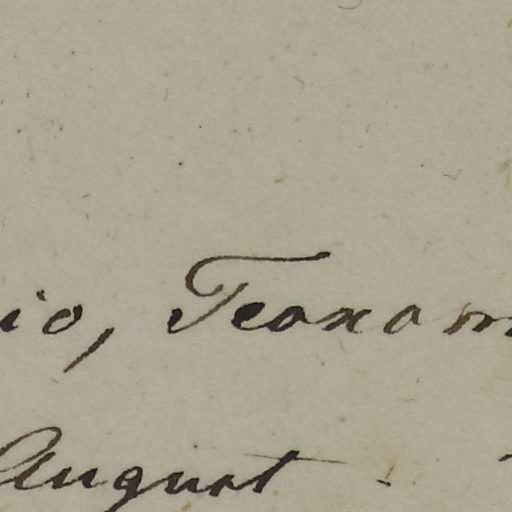 io, Teoxom
August .